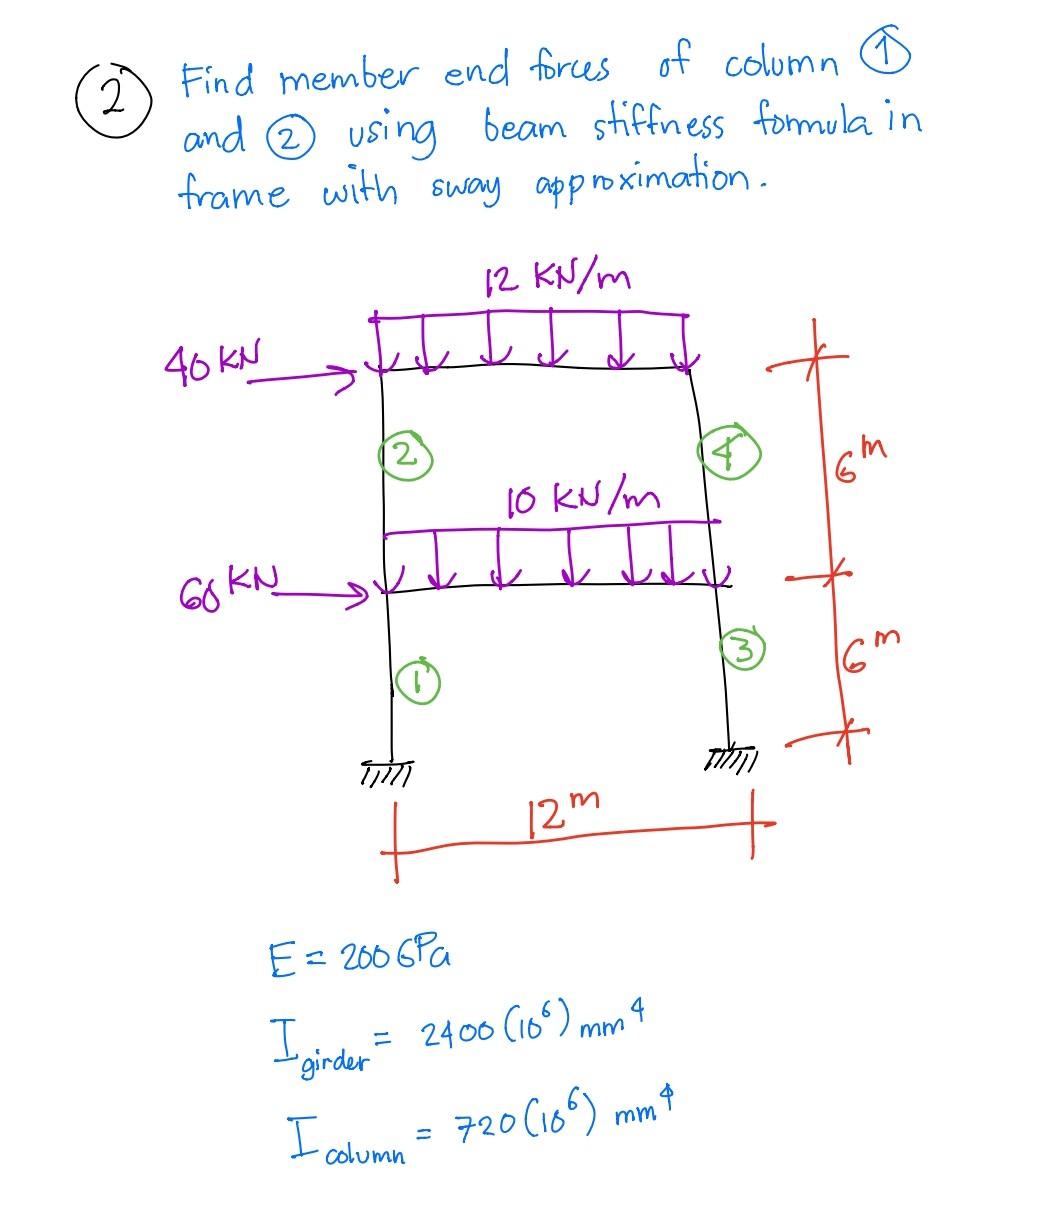 2 Find member end forces of column 1
and 2 using beam stiffness formula in
frame with sway approximation.
12 KN/m
40 KN
2
4
6 m
10 KN/m
60 KN
1
3
6 m
12 m
E = 200 GPa
I girder = 2400 (10^6) mm^4
I column = 720 (10^6) mm^4